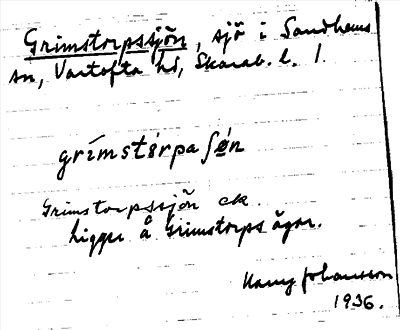 Grimstorpssjön, sjö i Sandhems
sn, Vartofta hd, Skarab. l. 1.
grímstórpaʃǿn
Grimstorpssjön ek.
ligger å Grimstorps ägor.
Harry Johansson
1936.